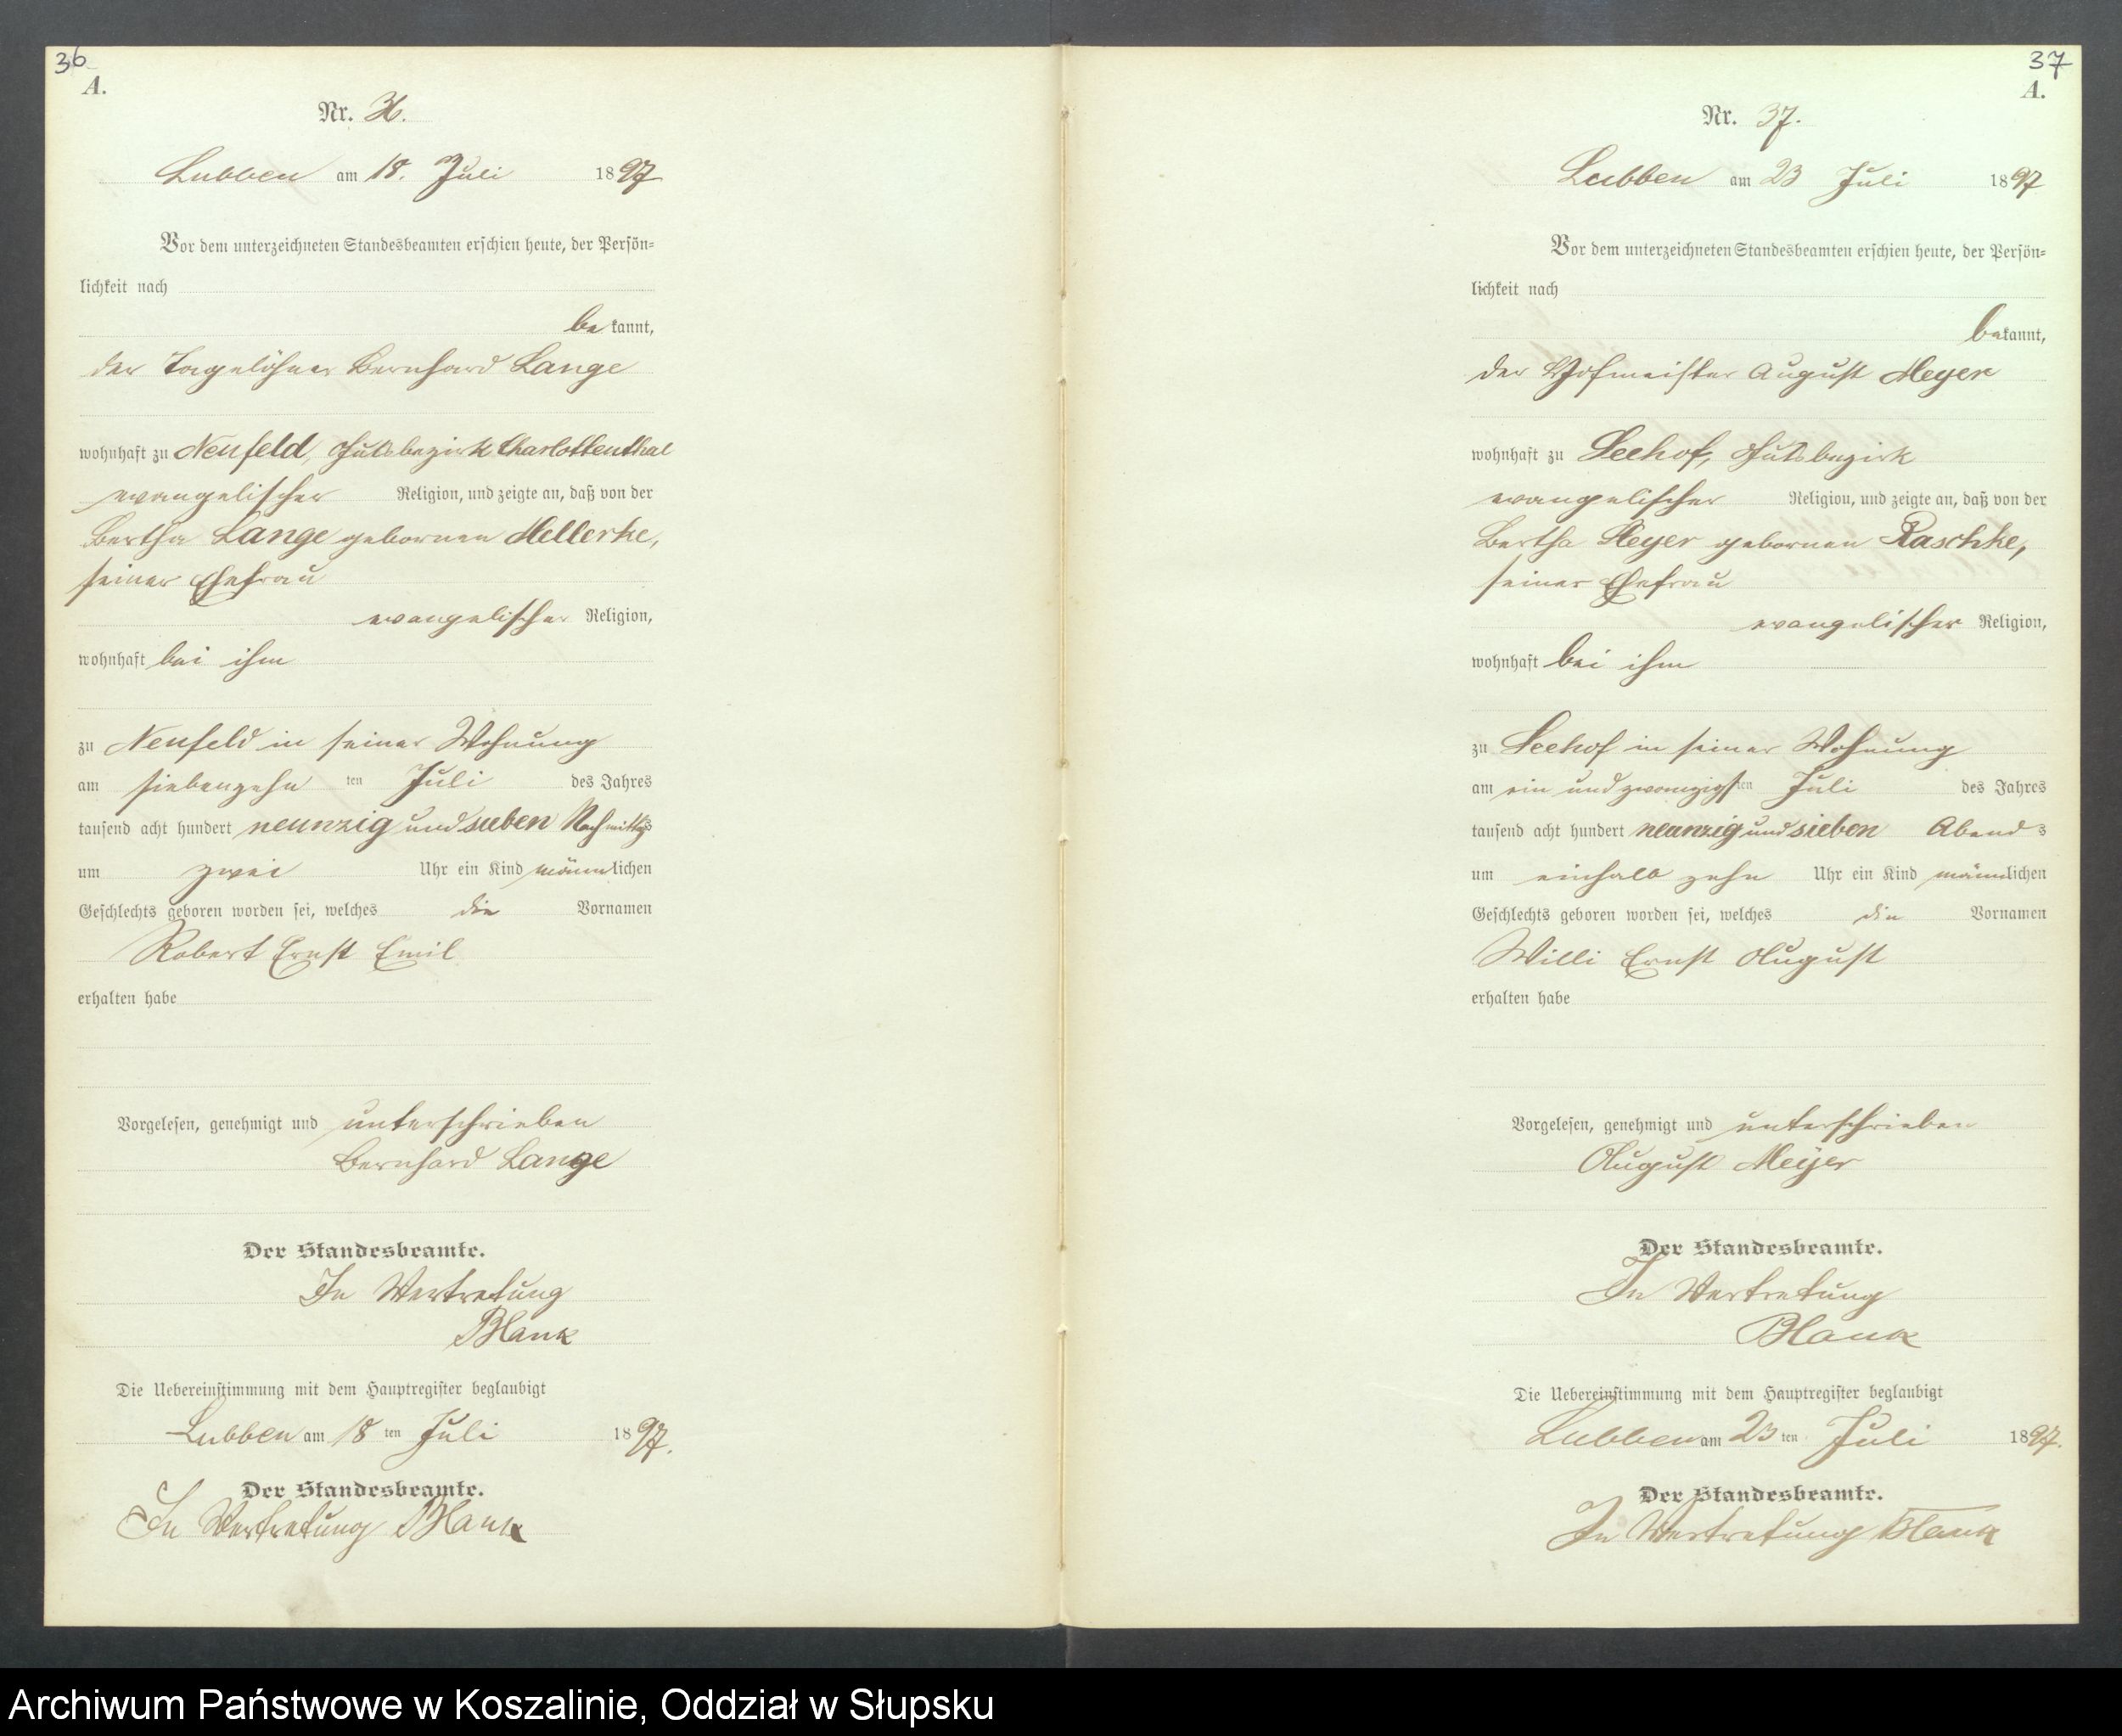 36
A.
Nr. 36.
Lubben am 18. Juli 1897
Vor dem unterzeichneten Standesbeamten erschien heute, der Persön-
lichkeit nach
bekannt,
der Tagelöhner Bernhard Lange
wohnhaft zu Neufeld, Gutsbezirk Charlottenthal
evangelischer Religion, und zeigte an, daß von der
Bertha Lange gebornen Mellerke,
seiner Ehefrau
evangelischer Religion,
wohnhaft bei ihm
zu Neufeld in seiner Wohnung
am siebenzehn ten Juli des Jahres
tausend acht hundert neunzig und sieben Nachmittags
um zwei Uhr ein Kind männlichen
Geschlechts geboren worden sei, welches die Vornamen
Robert Ernst Emil
erhalten habe
Vorgelesen, genehmigt und unterschrieben
Bernhard Lange
Der Standesbeamte.
In Vertretung
Blank
Die Uebereinstimmung mit dem Hauptregister beglaubigt
Lubben am 18 ten Juli 1897.
Der Standesbeamte.
In Vertretung Blank
37
A.
Nr. 37.
Lubben am 23 Juli 1897
Vor dem unterzeichneten Standesbeamten erschien heute, der Persön-
lichkeit nach
bekannt,
der Hofmeister August Meyer
wohnhaft zu Seehof, Gutsbezirk
evangelischer Religion, und zeigte an, daß von der
Bertha Meyer gebornen Raschke,
seiner Ehefrau
evangelischer Religion,
wohnhaft bei ihm
zu Seehof in seiner Wohnung
am ein und zwanzigsten Juli des Jahres
tausend acht hundert neunzig und sieben Abends
um einhalb zehn Uhr ein Kind männlichen
Geschlechts geboren worden sei, welches die Vornamen
Willi Ernst August
erhalten habe
Vorgelesen, genehmigt und unterschrieben
August Meyer
Der Standesbeamte.
In Vertretung
Blank
Die Uebereinstimmung mit dem Hauptregister beglaubigt
Lubben am 23 ten Juli 1897.
Der Standesbeamte.
In Vertretung Blank
Archiwum Państwowe w Koszalinie, Oddział w Słupsku